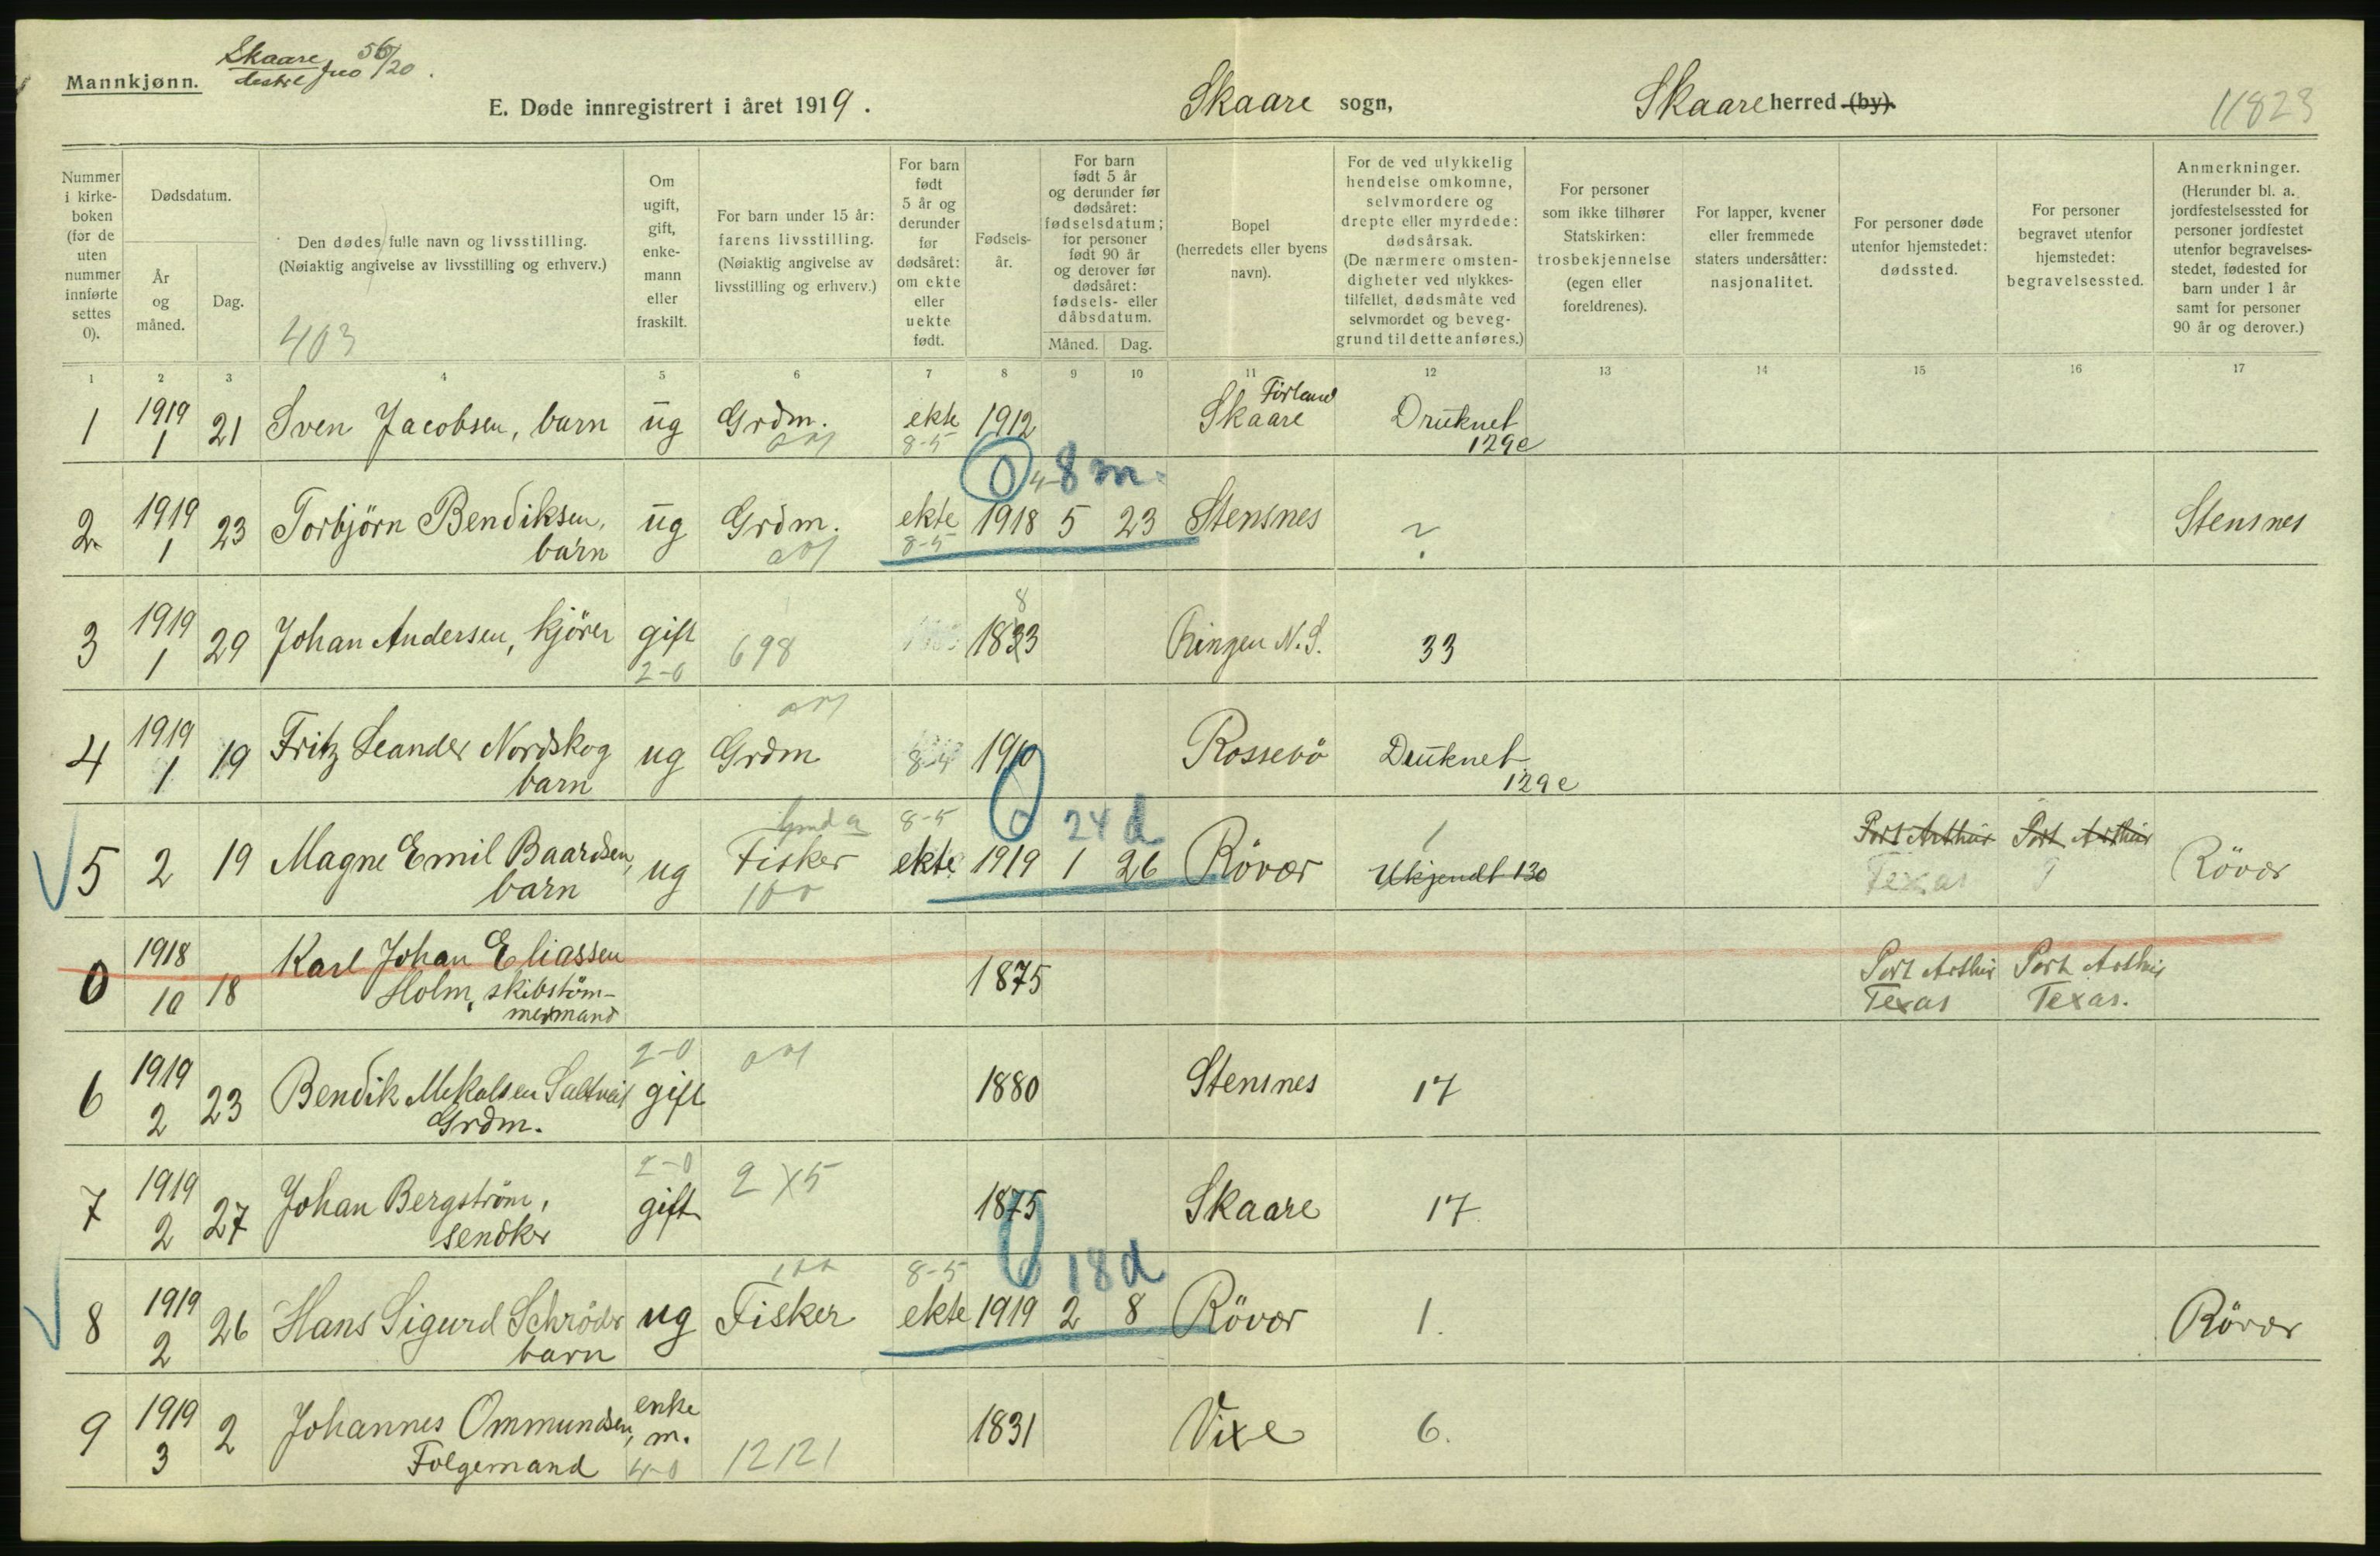 Mannkjønn.
Skaare 56/20
E. Døde innregistrert i året 1919.
Skaare sogn,
Skaare herred (by).
11823
Nummer i kirkeboken (for de uten nummer innførte settes 0).
Dødsdatum.
År og måned.
Dag.
Den dødes fulle navn og livsstilling.
(Nøiaktig angivelse av livsstilling og erhverv.)
403
Om ugift, gift, enkemann eller fraskilt.
For barn under 15 år: farens livsstilling. (Nøiaktig angivelse av livsstilling og erhverv.)
For barn født 5 år og derunder før dødsåret: om ekte eller uekte født.
Fødselsår.
For barn født 5 år og derunder før dødsåret: fødselsdatum; for personer født 90 år og derover før dødsåret: fødsels- eller dåbsdatum.
Måned. Dag.
Bopel (herredets eller byens navn).
For de ved ulykkelig hendelse omkomne, selvmordere og drepte eller myrdede: dødsårsak. (De nærmere omstendigheter ved ulykkestilfellet, dødsmåte ved selvmordet og beveggrund til dette anføres.)
For personer som ikke tilhører Statskirken: trosbekjennelse (egen eller foreldrenes).
For lapper, kvener eller fremmede staters undersåtter: nasjonalitet.
For personer døde utenfor hjemstedet: dødssted.
For personer begravet utenfor hjemstedet: begravelsessted.
Anmerkninger. (Herunder bl. a. jordfestelsessted for personer jordfestet utenfor begravelsesstedet, fødested for barn under 1 år samt for personer 90 år og derover.)
1 2 3 4 5 6 7 8 9 10 11 12 13 14 15 16 17
1 1919 1 21 Sven Jacobsen, barn ug Grdm. ekte 8-5 1912 Skaare Förland Druknet 129e
0 8 m.
2 1919 1 23 Torbjörn Bendiksen, barn ug Grdm. ekte 8-5 1918 5 23 Stensnes ? Stensnes
3 1919 1 29 Johan Andersen, kjörer gift 2-0 698 1833 8 Ringen N.S. 33
4 1919 1 19 Fritz Leander Nordskog barn ug Grdm 1910 Rossebö Druknet 129e
24 d
5 2 19 Magne Emil Baardsen, barn ug Fisker 100 8-5 ekte 1919 1 26 Rövær 1 Ukjendt 130 Port Arthur Texas Port Arthur Rövær
0 1918 10 18 Karl Johan Eliassen Holm, skibstömmermand 1875 Port Arthur Texas Port Arthur Texas.
6 1919 2 23 Bendik Mikalsen Saltveit Grdm. 2-0 gift 1880 Stensnes 17
7 1919 2 27 Johan Bergström, senöker 2-0 gift 2x5 1875 Skaare 17
18 d
8 1919 2 26 Hans Sigurd Schröder barn ug Fisker 8-5 ekte 1919 2 8 Rövær 1. Rövær
9 1919 3 2 Johannes Ommundsen, Folgemand enkem. 4-0 12121 1831 Vixe 6.